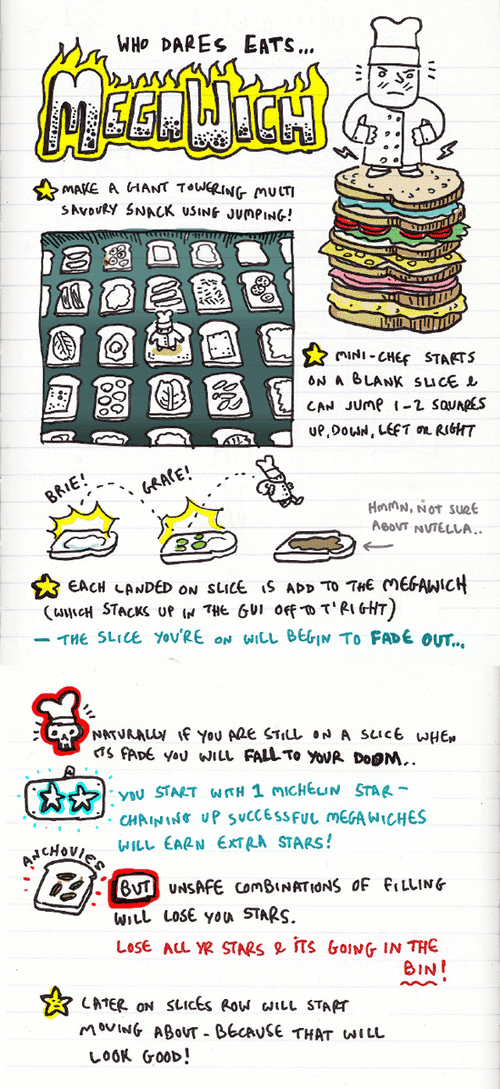 WHO DARES EATS...
MEGAWICH
MAKE A GIANT TOWERING MULTI
SAVOURY SNACK USING JUMPING!
MINI-CHEF STARTS
ON A BLANK SLICE &
CAN JUMP 1-2 SQUARES
UP, DOWN, LEFT OR RIGHT
BRIE!
GRAPE!
HMMN, NOT SURE
ABOUT NUTELLA..
EACH LANDED ON SLICE IS ADD TO THE MEGAWICH
(WHICH STACKS UP IN THE GUI OFF TO T'RIGHT)
- THE SLICE YOU'RE ON WILL BEGIN TO FADE OUT...
NATURALLY IF YOU ARE STILL ON A SLICE WHEN
ITS FADE YOU WILL FALL TO YOUR DOOM..
YOU START WITH 1 MICHELIN STAR -
CHAINING UP SUCCESSFUL MEGAWICHES
WILL EARN EXTRA STARS!
ANCHOVIES
BUT UNSAFE COMBINATIONS OF FILLING
WILL LOSE YOU STARS.
LOSE ALL YR STARS & ITS GOING IN THE
BIN!
LATER ON SLICES ROW WILL START
MOVING ABOUT - BECAUSE THAT WILL
LOOK GOOD!